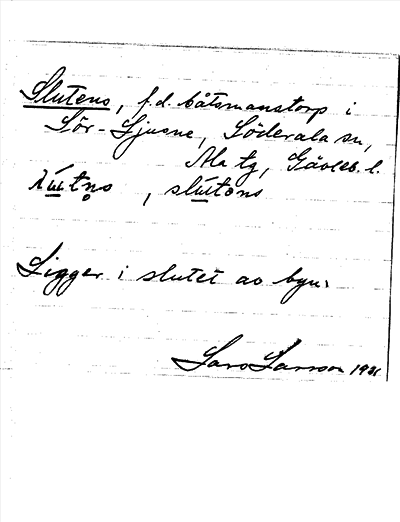 Slutens, f.d. båtsmanstorp i
Sör-Ljusne, Söderala sn,
Ala tg, Gävleb. l.
, slútons
Ligger i slutet av byn.
Lars Larsson